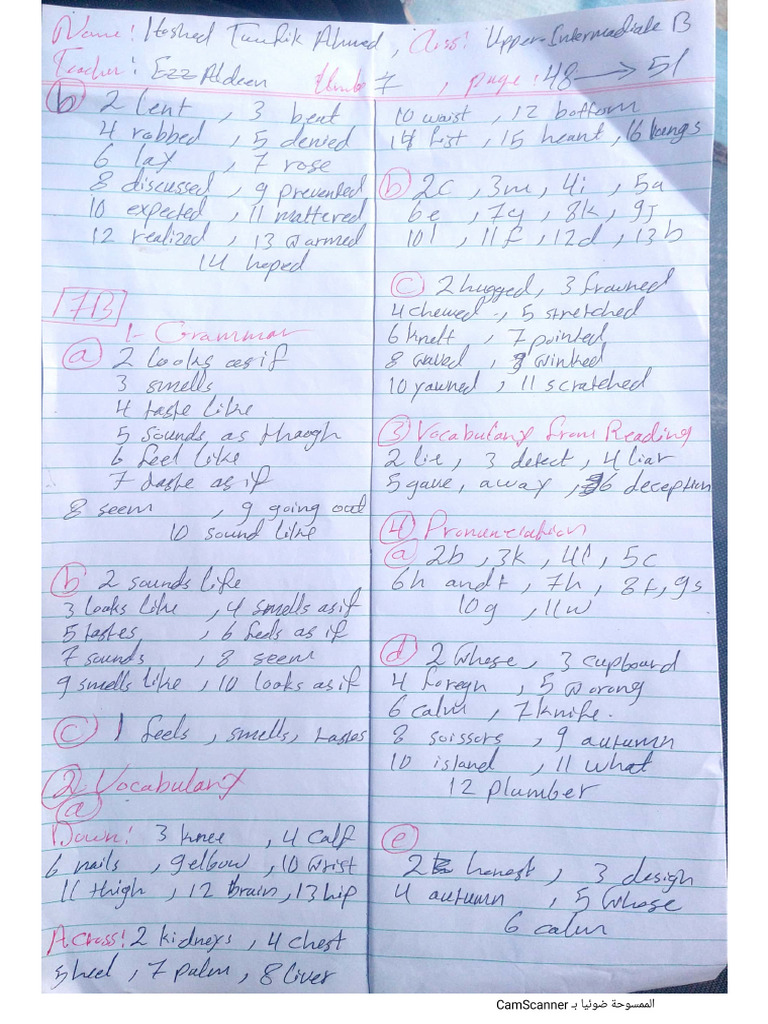 Name: Hashed Taufik Ahmed, Class: Upper-Intermediate B
Teacher: Ezz Aldeen Unite 7, page: 48 → 51
b 2 lent, 3 beat
4 robbed, 5 denied
6 lay, 7 rose
8 discussed, 9 prevented
10 expected, 11 mattered
12 realized, 13 warned
14 hoped
7B
1- Grammar
a 2 looks as if
3 smells
4 taste like
5 sounds as though
6 feel like
7 taste as if
8 seem, 9 going out
10 sound like
b 2 sounds like
3 looks like, 4 smells as if
5 tastes, 6 feels as if
7 sounds, 8 seem
9 smells like, 10 looks as if
c 1 feels, smells, tastes
2 Vocabulary
a
Down: 3 knee, 4 calf
6 nails, 9 elbow, 10 wrist
11 thigh, 12 brain, 13 hip
Across: 2 kidneys, 4 chest
5 heel, 7 palm, 8 liver
10 waist, 12 bottom
14 fist, 15 heart, 16 lungs
b 2c, 3m, 4i, 5a
6e, 7g, 8k, 9j
10l, 11f, 12d, 13b
c 2 hugged, 3 frowned
4 chewed, 5 stretched
6 knelt, 7 pointed
8 waved, 9 winked
10 yawned, 11 scratched
3 Vocabulary from Reading
2 lie, 3 detect, 4 liar
5 gave, away, 6 deception
4 Pronunciation
a 2b, 3k, 4l, 5c
6h and t, 7h, 8t, 9s
10g, 11w
d 2 whose, 3 cupboard
4 foregn, 5 worong
6 calm, 7 knife.
8 soissors, 9 autumn
10 island, 11 what
12 plumber
e
2 honest, 3 design
4 autumn, 5 whose
6 calm
الممسوحة ضوئيا بـ CamScanner